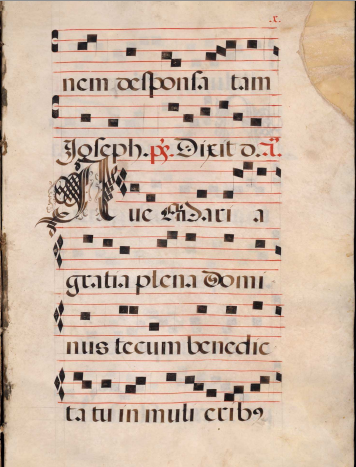 .x.
nem desponsa tam
Joseph. ps. Dixit d. a.
Aue Maari a
gratia plena Domi
nus tecum benedic
ta tu in muli erib9